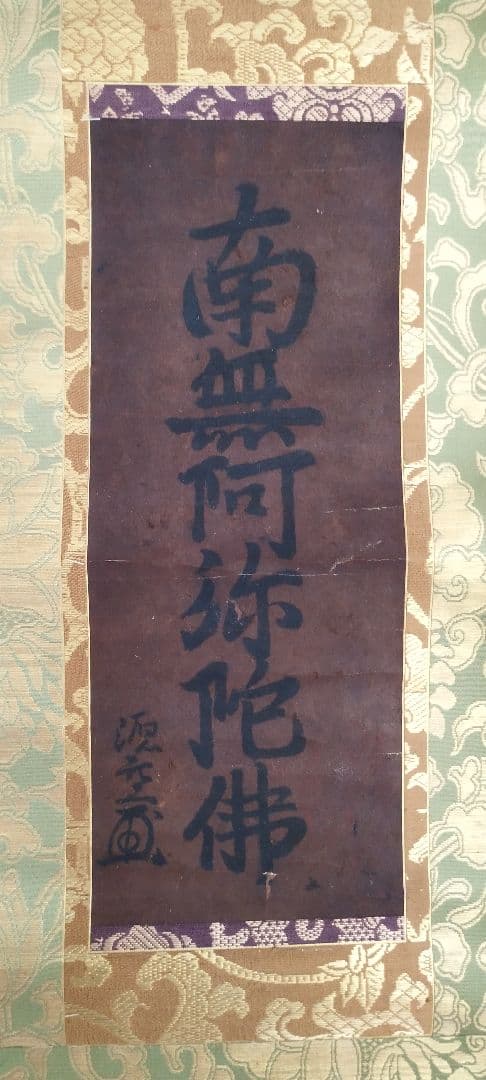 南無阿弥陀佛
源空